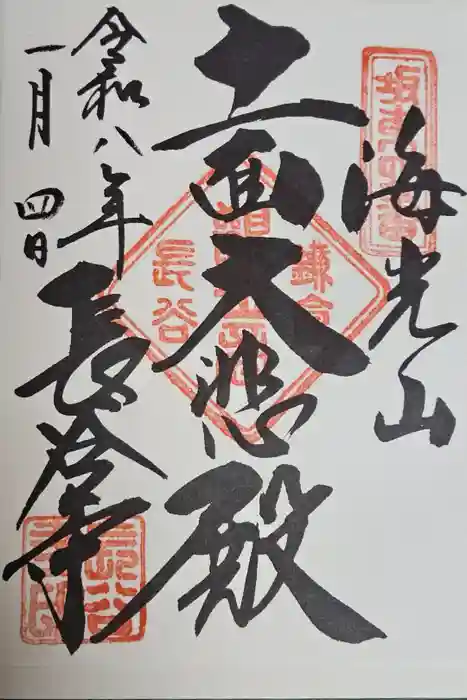 海光山
十一面大悲殿
長谷寺
令和八年
一月四日
鎌倉
長谷